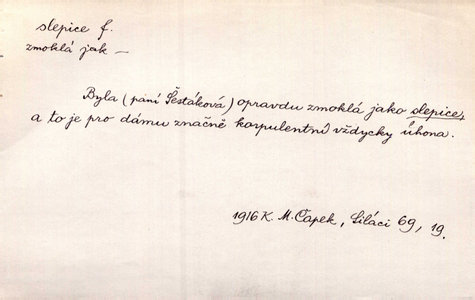 slepice f.
zmoklá jak —
Byla (paní Šestáková) opravdu zmoklá jako slepice,
a to je pro dámu značně korpulentní vždycky úhona.
1916 K. M. Čapek, Siláci 69, 19.